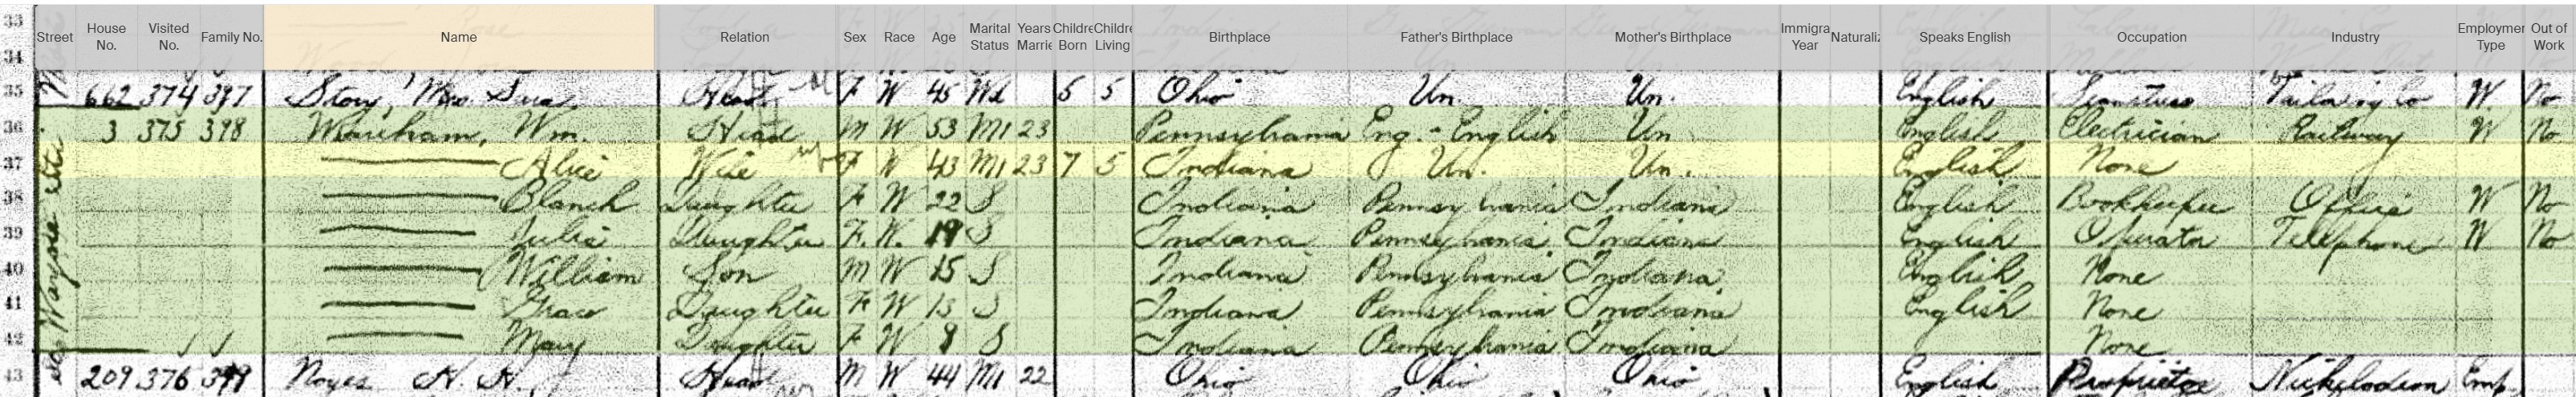 33
34
Street House No. Visited No. Family No. Name Relation Sex Race Age Marital Status Years Marrie Childre Born Childre Living Birthplace Father's Birthplace Mother's Birthplace Immigra Year Naturaliz Speaks English Occupation Industry Employmen Type Out of Work
35 662 374 397 Story, Mrs. Head F W 45 Wd 5 5 Ohio Un. Un. English Tailoring Co W. No
36 3 375 398 Wareham, Wm. Head M W 53 M1 23 Pennsylvania Eng. - English Un English Electrician Railway W No
37 Alice Wife F W 43 M1 23 7 5 Indiana Un. Un. English None
38 Blanch Daughter F W 22 S Indiana Pennsylvania Indiana English Bookkeeper Office W No
39 Julia Daughter F. W. 19 S Indiana Pennsylvania Indiana English Operator Telephone W No
40 William Son M W 15 S Indiana Pennsylvania Indiana English None
41 Grace Daughter F W 13 S Indiana Pennsylvania Indiana English None
42 Mary Daughter F W 8 S Indiana Pennsylvania Indiana None
43 209 376 399 Noyes H. H. Head M W 44 M1 22 Ohio Ohio Ohio English Proprietor Nickelodeon Emp.